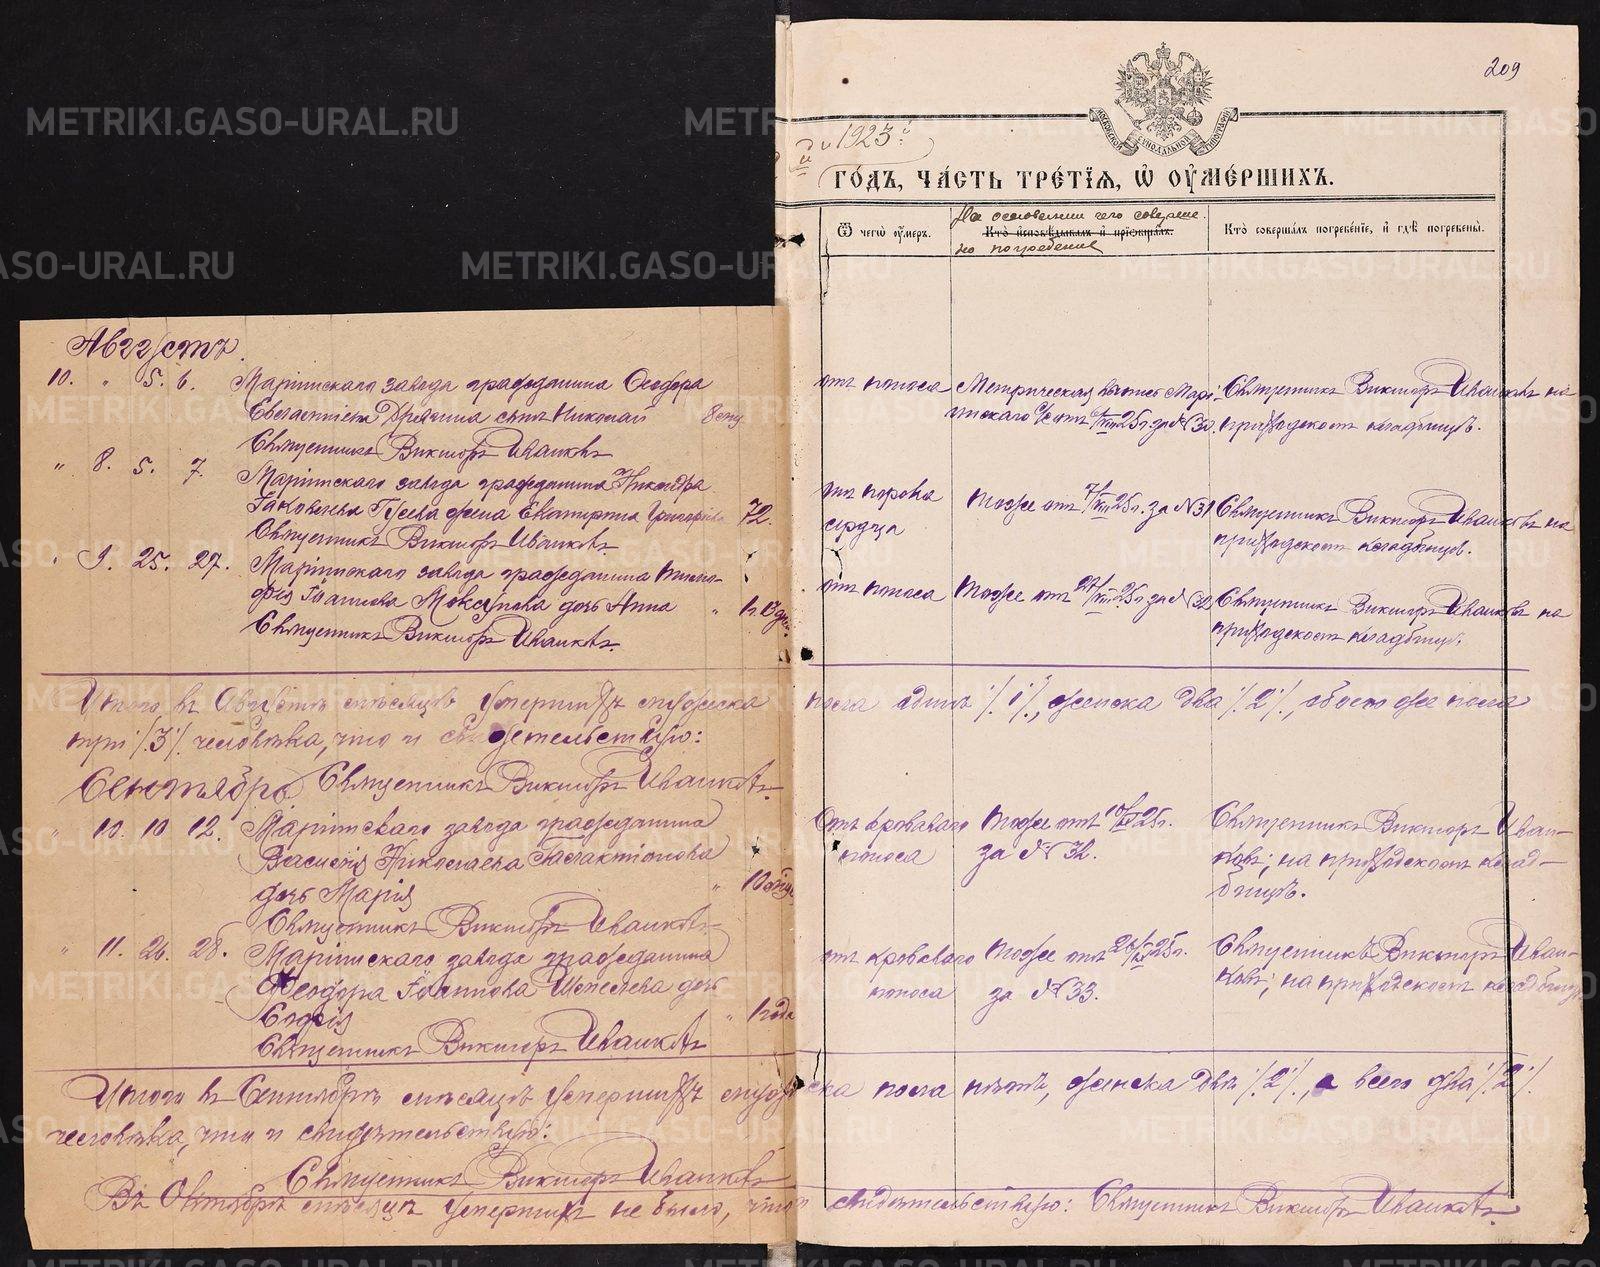 209
1923 г
ГОДЪ, ЧАСТЬ ТРЕТІЯ, Ѡ ОУМЕРШИХЪ.
Ѿ чегѡ оумеръ.
На основании чего соверше-
Кто исповѣдывалъ и пріобщалъ.
но погребение
Кто совершалъ погребеніе, и гдѣ погребены.
Августъ.
10. " 5. 6. Маріинскаго завода гражданина Ѳеодора
Дрягина сынъ Николай
Священникъ Викторъ Иванковъ
отъ поноса
Метрическая выпись Марі-
инскаго 6/VIII 25г. за № 30.
Священникъ Викторъ Иванковъ на
приходскомъ кладбищѣ.
" 8. 5. 7. Маріинскаго завода гражданина Никандра
Іаковлева Гусева жена Екатерина Григорьева 72.
Священникъ Викторъ Иванковъ.
отъ порока
сердца
Тоже отъ 7/VIII 25г. за № 31
Священникъ Викторъ Иванковъ на
приходскомъ кладбищѣ.
" 9. 25. 27. Маріинскаго завода гражданина Тимо-
фея Іоаннова дочь Анна "
Священникъ Викторъ Иванковъ.
отъ поноса
Тоже отъ 27/VIII 25г. за №
Священникъ Викторъ Иванковъ на
приходскомъ кладбищѣ.
Итого въ Августѣ мѣсяцѣ умершихъ мужеска пола одинъ /.1./, женска два /.2./, обоего же пола
три /.3./ человѣка, что и свидѣтельствую:
Священникъ Викторъ Иванковъ.
Сентябрь
" 10. 10 12. Маріинскаго завода гражданина
Василія Николаева Галактіонова
дочь Марія "
Священникъ Викторъ Иванковъ
Отъ кроваваго
поноса
Тоже отъ 10/IX 25г.
за № 32.
Священникъ Викторъ Иван-
ковъ; на приходскомъ клад-
бищѣ.
" 11. 26. 28. Маріинскаго завода гражданина
Ѳеодора Іоаннова Шепелева дочь
Софія " 1 года
Священникъ Викторъ Иванковъ
отъ кроваваго
поноса
Тоже отъ 26/IX 25г.
за № 33.
Священникъ Викторъ Иван-
ковъ; на приходскомъ кладбищѣ
Итого въ Сентябрѣ мѣсяцѣ умершихъ мужеска пола нѣтъ, женска двѣ /.2./, а всего два /.2./
человѣка, что и свидѣтельствую:
Священникъ Викторъ Иванковъ
Въ Октябрѣ мѣсяцѣ умершихъ не было, что и свидѣтельствую: Священникъ Викторъ Иванковъ.
METRIKI.GASO-URAL.RU